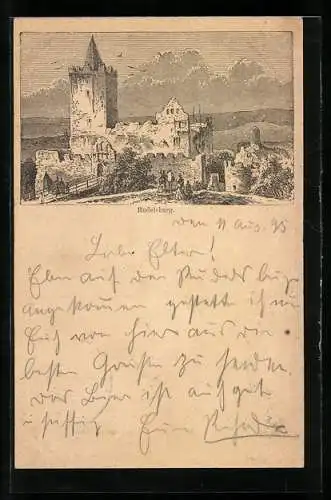 Rudelsburg.
den 11 Aug. 95
Liebe Eltern!
Eben auf der Rudelsburg
angekommen gestatte ich mir
Euch von hier aus die
besten Grüße zu senden.
Das Bier ist auch gut
Euer